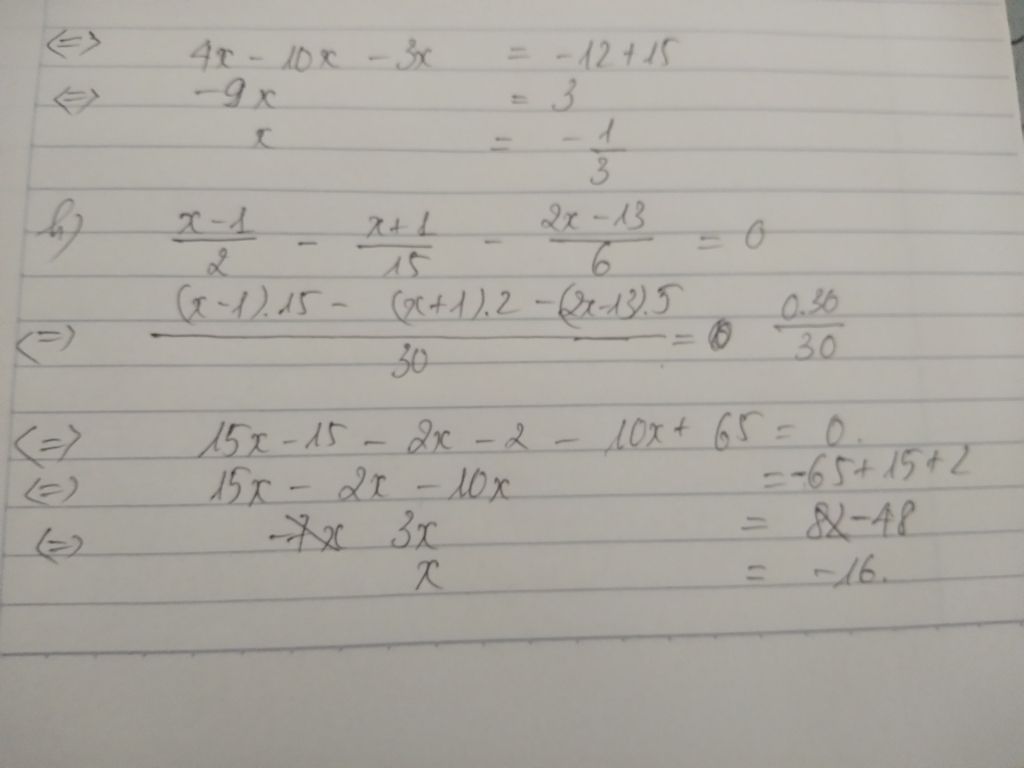 <=> 4x - 10x - 3x = -12 + 15
<=> -9x = 3
x = -1/3
h) (x-1)/2 - (x+1)/15 - (2x-13)/6 = 0
<=> ((x-1).15 - (x+1).2 - (2x-13).5)/30 = 0 0.30/30
<=> 15x - 15 - 2x - 2 - 10x + 65 = 0.
<=> 15x - 2x - 10x = -65 + 15 + 2
<=> -7x 3x = 82 -48
x = -16.